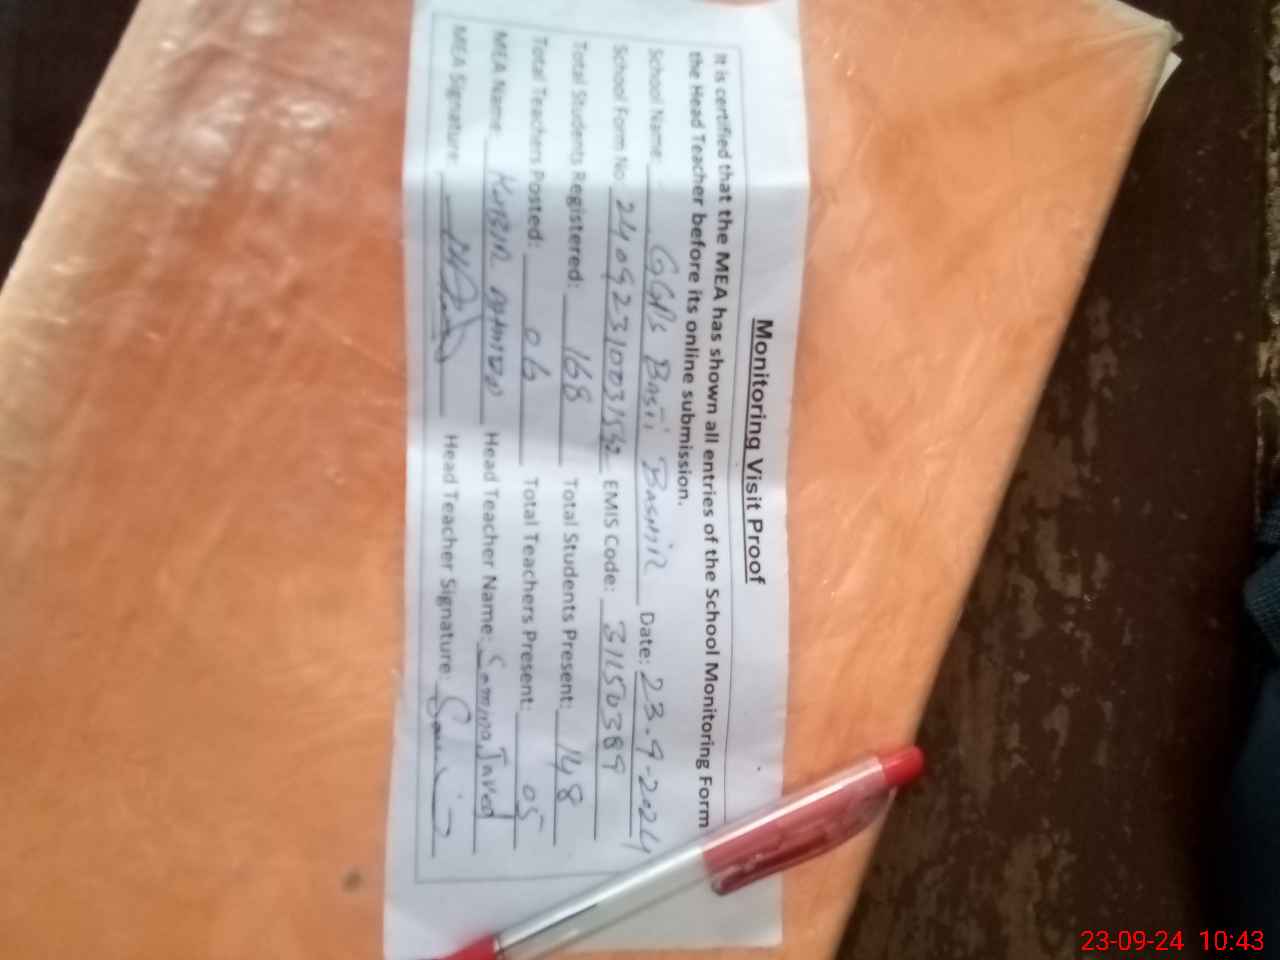 Monitoring Visit Proof
It is certified that the MEA has shown all entries of the School Monitoring Form
the Head Teacher before its online submission.
School Name: GGPS Basti Bashir Date: 23-9-2024
School Form No: EMIS Code: 31150389
Total Students Registered: 168 Total Students Present: 148
Total Teachers Posted: 06 Total Teachers Present: 05
MEA Name: Head Teacher Name: Javed
MEA Signature: Head Teacher Signature:
23-09-24 10:43